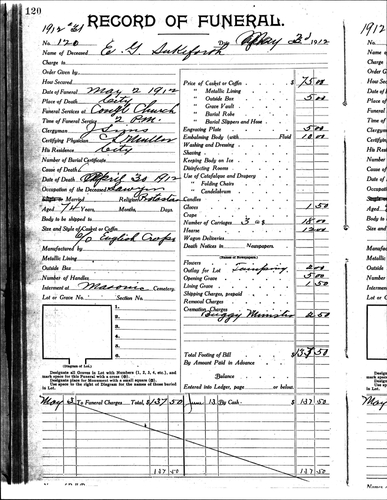 120
1912
RECORD OF FUNERAL.
No. 120
Name of Deceased E G
May 2 1912
Charge to
Order Given by
How Secured
Date of Funeral May 2 1912
Place of Death City
Funeral Services at Cong'l Church
Time of Funeral Service 2 P.M.
Clergyman J Sims
Certifying Physician
His Residence City
Number of Burial Certificate
Cause of Death
Date of Death April 30 1912
Occupation of the Deceased Lawyer
Single or Married Religion
Aged 74 Years, Months, Days.
Body to be shipped to
Size and Style of Casket or Coffin
English
Manufactured by
Metallic Lining
Outside Box
Number of Handles
Interment at Masonic Cemetery.
Lot or Grave No. Section No.
1.
2.
3.
4.
5.
6.
(Diagram of Lot.)
Designate all Graves in Lot with Numbers (1, 2, 3, 4, etc.), and
mark space for this Funeral with a cross
Designate place for Monument with a small square
Use the space to right of Diagram for the names of those buried
in Lot.
Price of Casket or Coffin $ 75 00
" Metallic Lining
" Outside Box 5 00
" Grave Vault
" Burial Robe
" Burial Slippers and Hose
Engraving Plate 5 00
Embalming Body (with Fluid 10 00
Washing and Dressing
Shaving
Keeping Body on Ice
Disinfecting Rooms
Use of Catafalque and Drapery
" Folding Chairs
" Candelabrum
Candles
Gloves 1 50
Crape
Number of Carriages 3 18 00
Hearse 12 00
Wagon Deliveries
Death Notices in Newspapers.
(Names of Newspapers)
Flowers
Outlay for Lot 2 00
Opening Grave 5 00
Lining Grave 1 50
Shipping Charges, prepaid
Removal Charges
Cremation Charges
Buggy Minister 2 50
Total Footing of Bill $ 137 50
By Amount Paid in Advance
Balance
Entered into Ledger, page or below.
May 3 To Funeral Charges Total, $ 137.50 June 13 By Cash 137 50
137 50 137 50